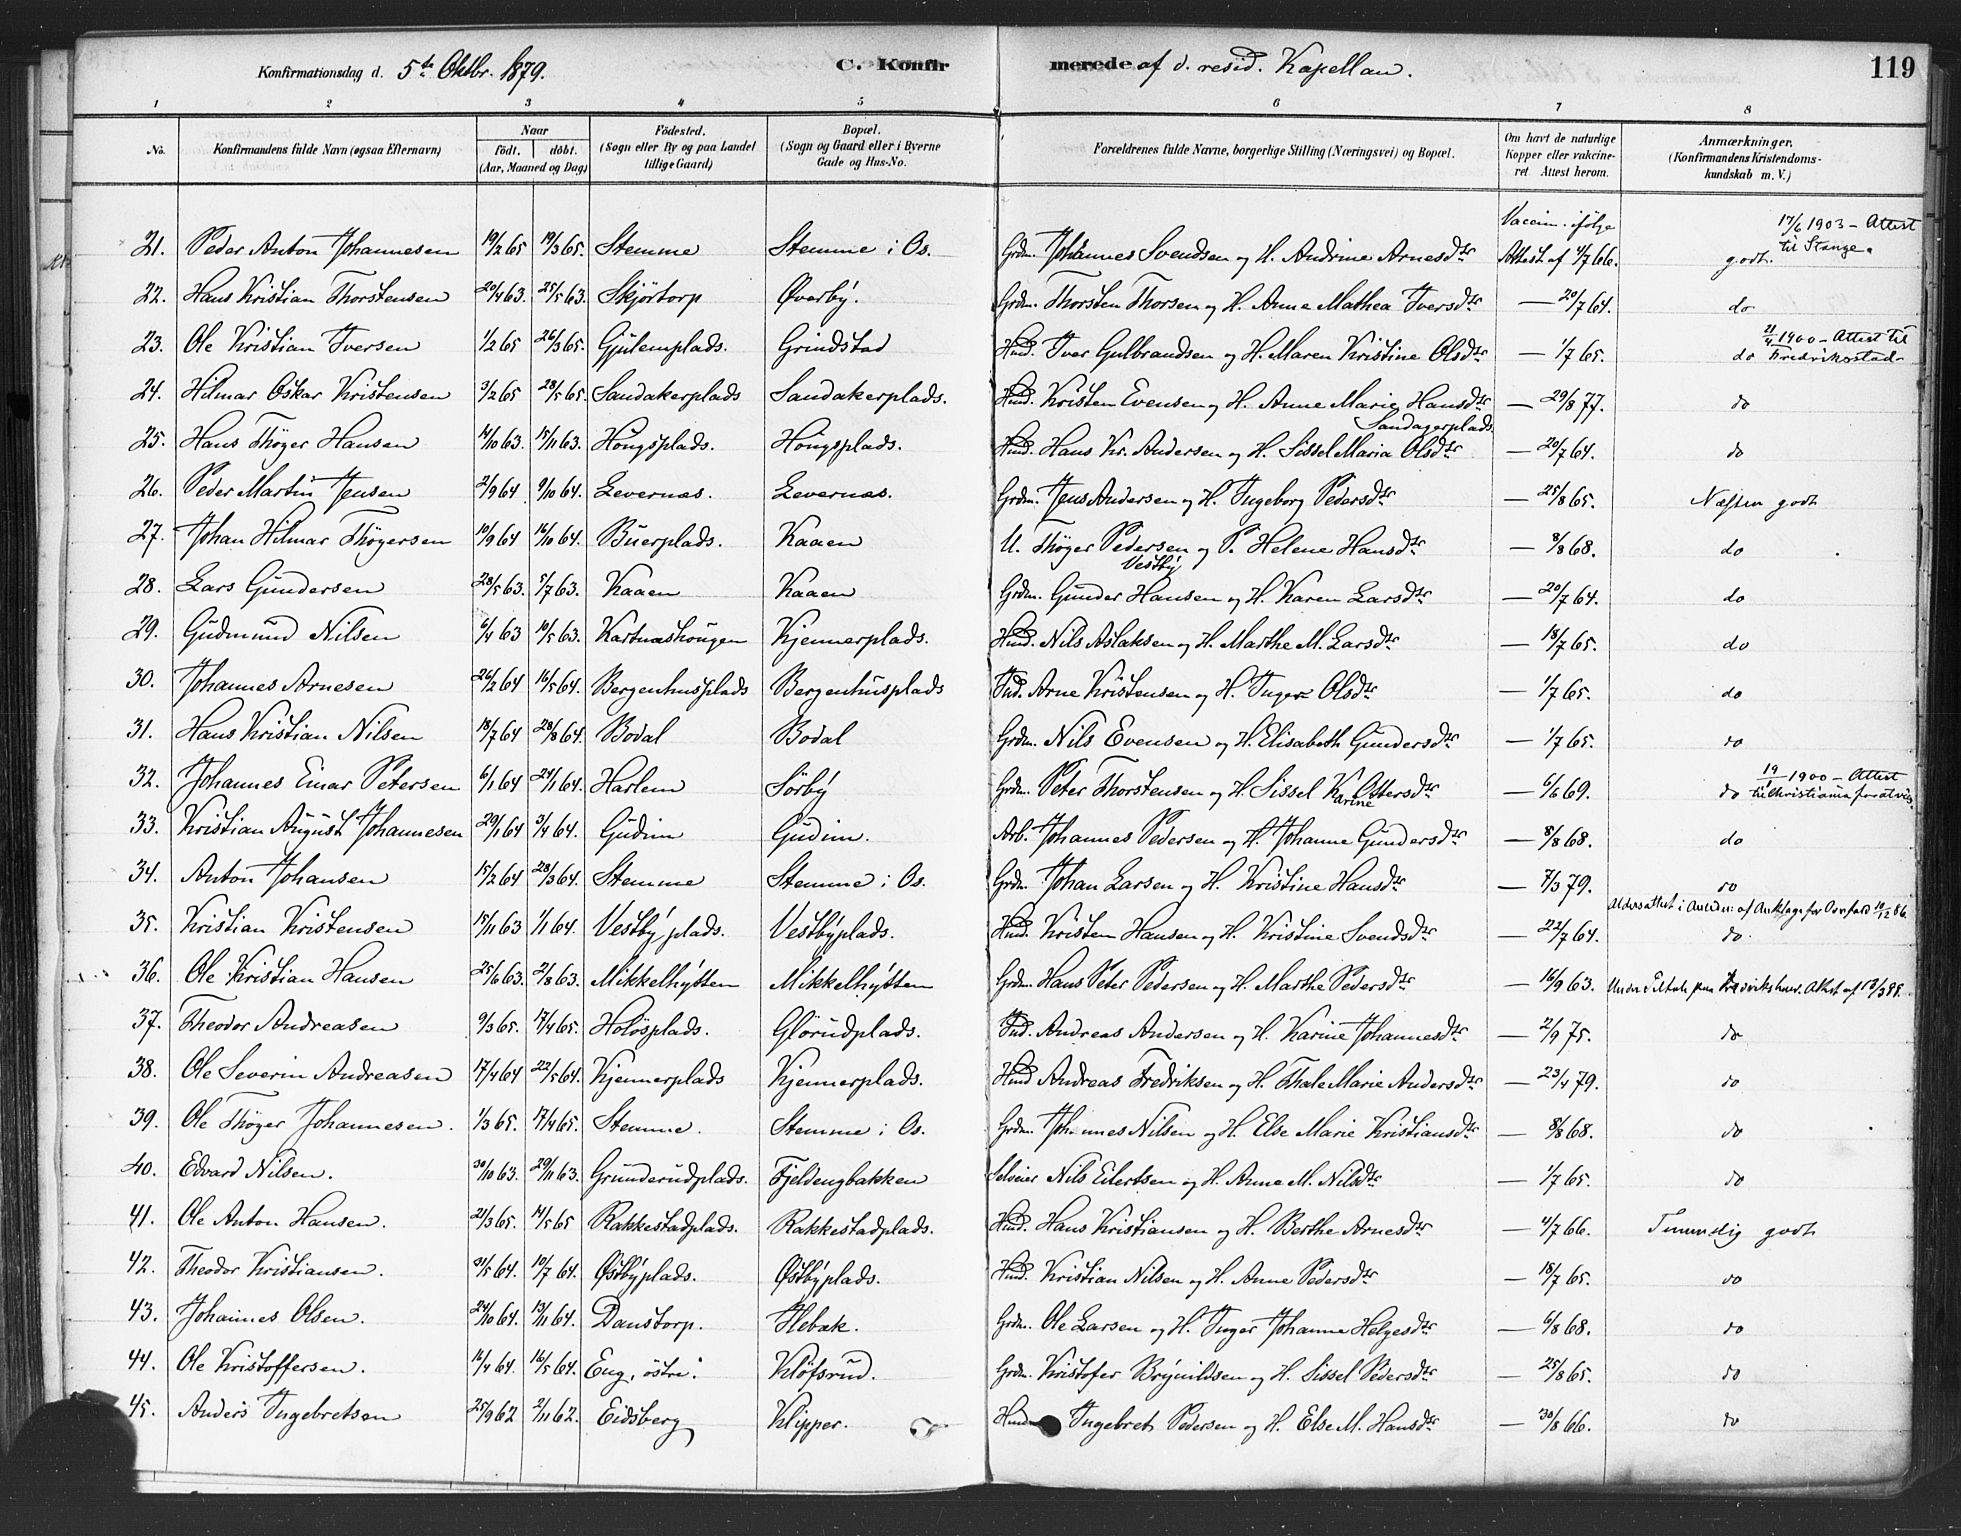 Konfirmationsdag d. 5te Oktbr. 1879. C. Konfirmerede af d. resid. Kapellan. 119
1 2 3 4 5 6 7 8
No. Konfirmandens fulde Navn (ogsaa Efternavn) Naar født. døbt. (Aar, Maaned og Dag) Fødested. (Sogn eller By og paa Landet tillige Gaard) Bopæl. (Sogn og Gaard eller i Byerne Gade og Hus-No. Forældrenes fulde Navne, borgerlige Stilling (Næringsvei) og Bopæl. Om havt de naturlige Kopper eller vakcineret Attest herom. Anmærkninger. (Konfirmandens Kristendomskundskab m. V.)
Vaccin. ifølge 17/6 1903 – Attest til Stange.
21. Peder Anton Johannesen 19/2 65 19/3 65. Stemme Stemme i Os. Grdm. Johannes Svendsen og H. Andrine Arnesdtr Attest af 4/7 66. godt.
22. Hans Kristian Thorstensen 20/4 63. 25/5 63. Skjørtorp Øverby. Grdm. Thorsten Thorsen og H. Anne Mathea Iversdtr — 20/7 64. do
23. Ole Kristian Iversen 1/2 65 26/3 65. Gjulemplads. Grindstad Hmd. Iver Gulbrandsen og H. Maren Kristine Olsdtr — 1/7 65. do 21/4 1900 – Attest til Fredrikstad
24. Hilmar Oskar Kristensen 3/2 65 28/5 65. Sandakerplads Sandakerplads. Hmd. Kristen Evensen og H. Anne Marie Hansdtr — 29/8 77. do
Sandagerplads.
25. Hans Thøger Hansen 14/10 63. 15/11 63. Hougsplads. Hougsplads. Hmd. Hans Kr. Andersen og H. Sissel Maria Olsdtr — 20/7 64. do
26. Peder Martin Jensen 2/9 64. 9/10 64. Levernæs. Levernæs. Grdm. Jens Andersen og H. Ingeborg Pedersdtr — 25/8 65. Næsten godt
27. Johan Hilmar Thøgersen 10/9 64 16/10 64. Buerplads. Kaaen U. Thøger Pedersen og P. Helene Hansdtr — 8/8 68. do
Vestby
28. Lars Gundersen 28/5 63. 5/7 63. Kaaen Kaaen Grdm. Gunder Hansen og H. Karen Larsdtr — 20/7 64. do
29. Gudmund Nilsen 6/4 63 10/5 63. Kartnæshougen Kjennerplads. Hmd. Nils Aslaksen og H. Marthe M. Larsdtr — 18/7 65. do
30. Johannes Arnesen 26/2 64 16/5 64. Bergenhusplads Bergenhusplads Ind. Arne Kristensen og H. Inger Olsdtr — 1/7 65. do
31. Hans Kristian Nilsen 18/7 64 28/8 64. Bodal Bodal Grdm. Nils Evensen og H. Elisabeth Gundersdtr — 1/7 65. do
32. Johannes Einar Petersen 6/1 64 24/1 64. Harlem Sørby Grdm. Peter Thorstensen og H. Sissel Karine Ottersdtr — 6/6 69. do 19/1 1900 – Attest til Christiania for at vies.
33. Kristian August Johannesen 29/1 64 3/4 64. Gudim Gudim. Arb. Johannes Pedersen og H. Johanne Gundersdtr — 8/8 68. do
34. Anton Johansen 15/2 64 28/3 64. Stemme Stemme i Os. Grdm. Johan Larsen og H. Kristine Hansdtr — 7/3 79. do
Aldersattest i Anledn: af Anklage for Overfald 10/12 86.
35. Kristian Kristensen 15/11 63 1/1 64. Vestbyplads. Vestbyplads. Hmd. Kristen Hansen og H. Kristine Svendsdtr — 22/7 64. do.
36. Ole Kristian Hansen 25/6 63. 2/8 63. Mikkelhytten Mikkelhytten Grdm. Hans Peter Pedersen og H. Marthe Pedersdtr — 16/9 63. Under Tiltale paa Fredrikshavn. Attest af 13/3 88.
37. Theodor Andreasen 9/3 65. 17/4 65. Holøsplads. Glørudplads. Ind. Andreas Andersen og H. Karine Johannesdtr — 2/9 75. do
38. Ole Severin Andreasen 17/4 64 22/5 64. Kjennerplads Kjennerplads. Hmd Andreas Fredriksen og H. Thale Marie Andersdtr — 23/4 79. do
39. Ole Thøger Johannesen. 1/3 65. 17/4 65. Stemme. Stemme i Os. Grdm. Johannes Nilsen og H. Else Marie Kristiansdtr — 8/8 68. do
40. Edvard Nilsen. 30/10 63. 29/11 63. Grunderudplads. Fjeldengbakken Selveier Nils Eilertsen og H. Anne M. Nilsdtr — 1/7 65. do
41. Ole Anton Hansen. 21/3 65. 14/5 65 Rakkestadplads. Rakkestadplads. Hmd. Hans Kristiansen og H. Berthe Arnesdtr — 4/7 66. Temmelig godt
42. Theodor Kristiansen. 31/5 64. 10/7 64. Østbyplads. Østbyplads. Hmd. Kristian Nilsen og H. Anne Pedersdtr — 18/7 65. do
43. Johannes Olsen. 24/10 64. 13/11 64. Danstorp. Hebæk. Grdm. Ole Larsen og H. Inger Johanne Helgesdtr — 6/8 68. do
44. Ole Kristoffersen. 16/4 64. 16/5 64. Eng, østre. Kløfsrud. Grdm. Kristofer Brynildsen og H. Sissel Pedersdtr — 25/8 65. do
45. Anders Ingebretsen 25/9 62 2/11 62. Eidsberg Klipper. Hmd Ingebret Pedersen og H. Else M. Hansdtr — 30/8 66. do